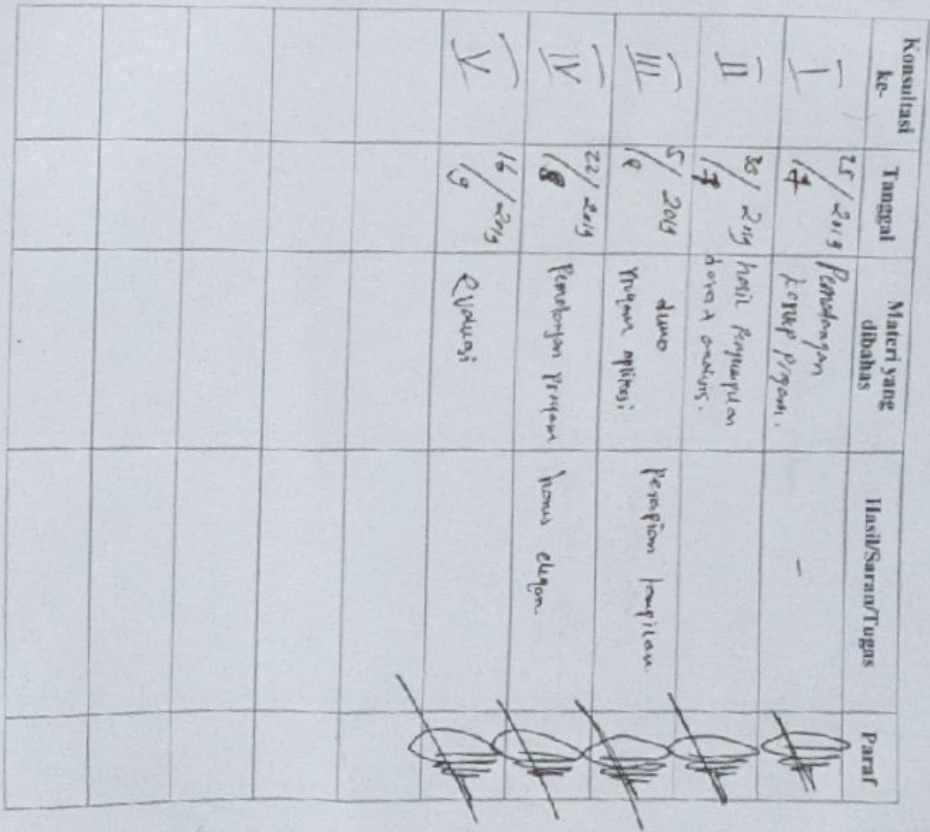 Konsultasi ke- Tanggal Materi yang dibahas Hasil/Saran/Tugas Paraf
I 25/7 2019 Pematangan konsep program. -
II 30/7 2019 hasil Pengumpulan data & analisis.
III 5/8 2019 demo Program aplikasi Perapian tampilan
IV 22/8 2019 Pematangan Program harus elegan
V 16/9 2019 Evaluasi